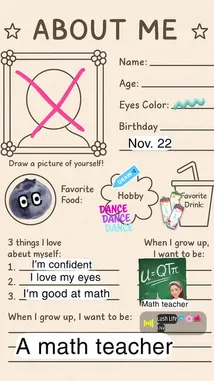 ☆ ABOUT ME ☆
Name:
Age:
Eyes Color:
Birthday
Nov. 22
Draw a picture of yourself!
Favorite
Food:
Hobby
DANCE
DANCE
DANCE
Favorite
Drink:
3 things I love
about myself:
1. I'm confident
2. I love my eyes
3. I'm good at math
When I grow up,
I want to be:
U=QTπ
Math teacher
Lush Life
When I grow up, I want to be:
A math teacher